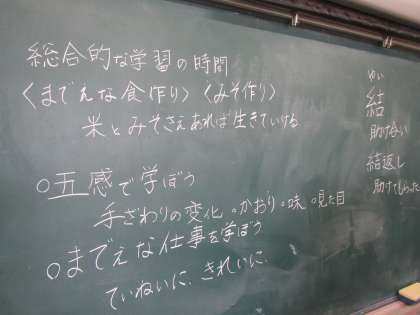 総合的な学習の時間
〈までえな食作り〉〈みそ作り〉
米とみそさえあれば生きていける
○五感で学ぼう
手ざわりの変化 ○かおり ○味 ○見た目
○までえな仕事を学ぼう
ていねいに、きれいに、
ゆい
結
助け合い
結返し
助けてもらった